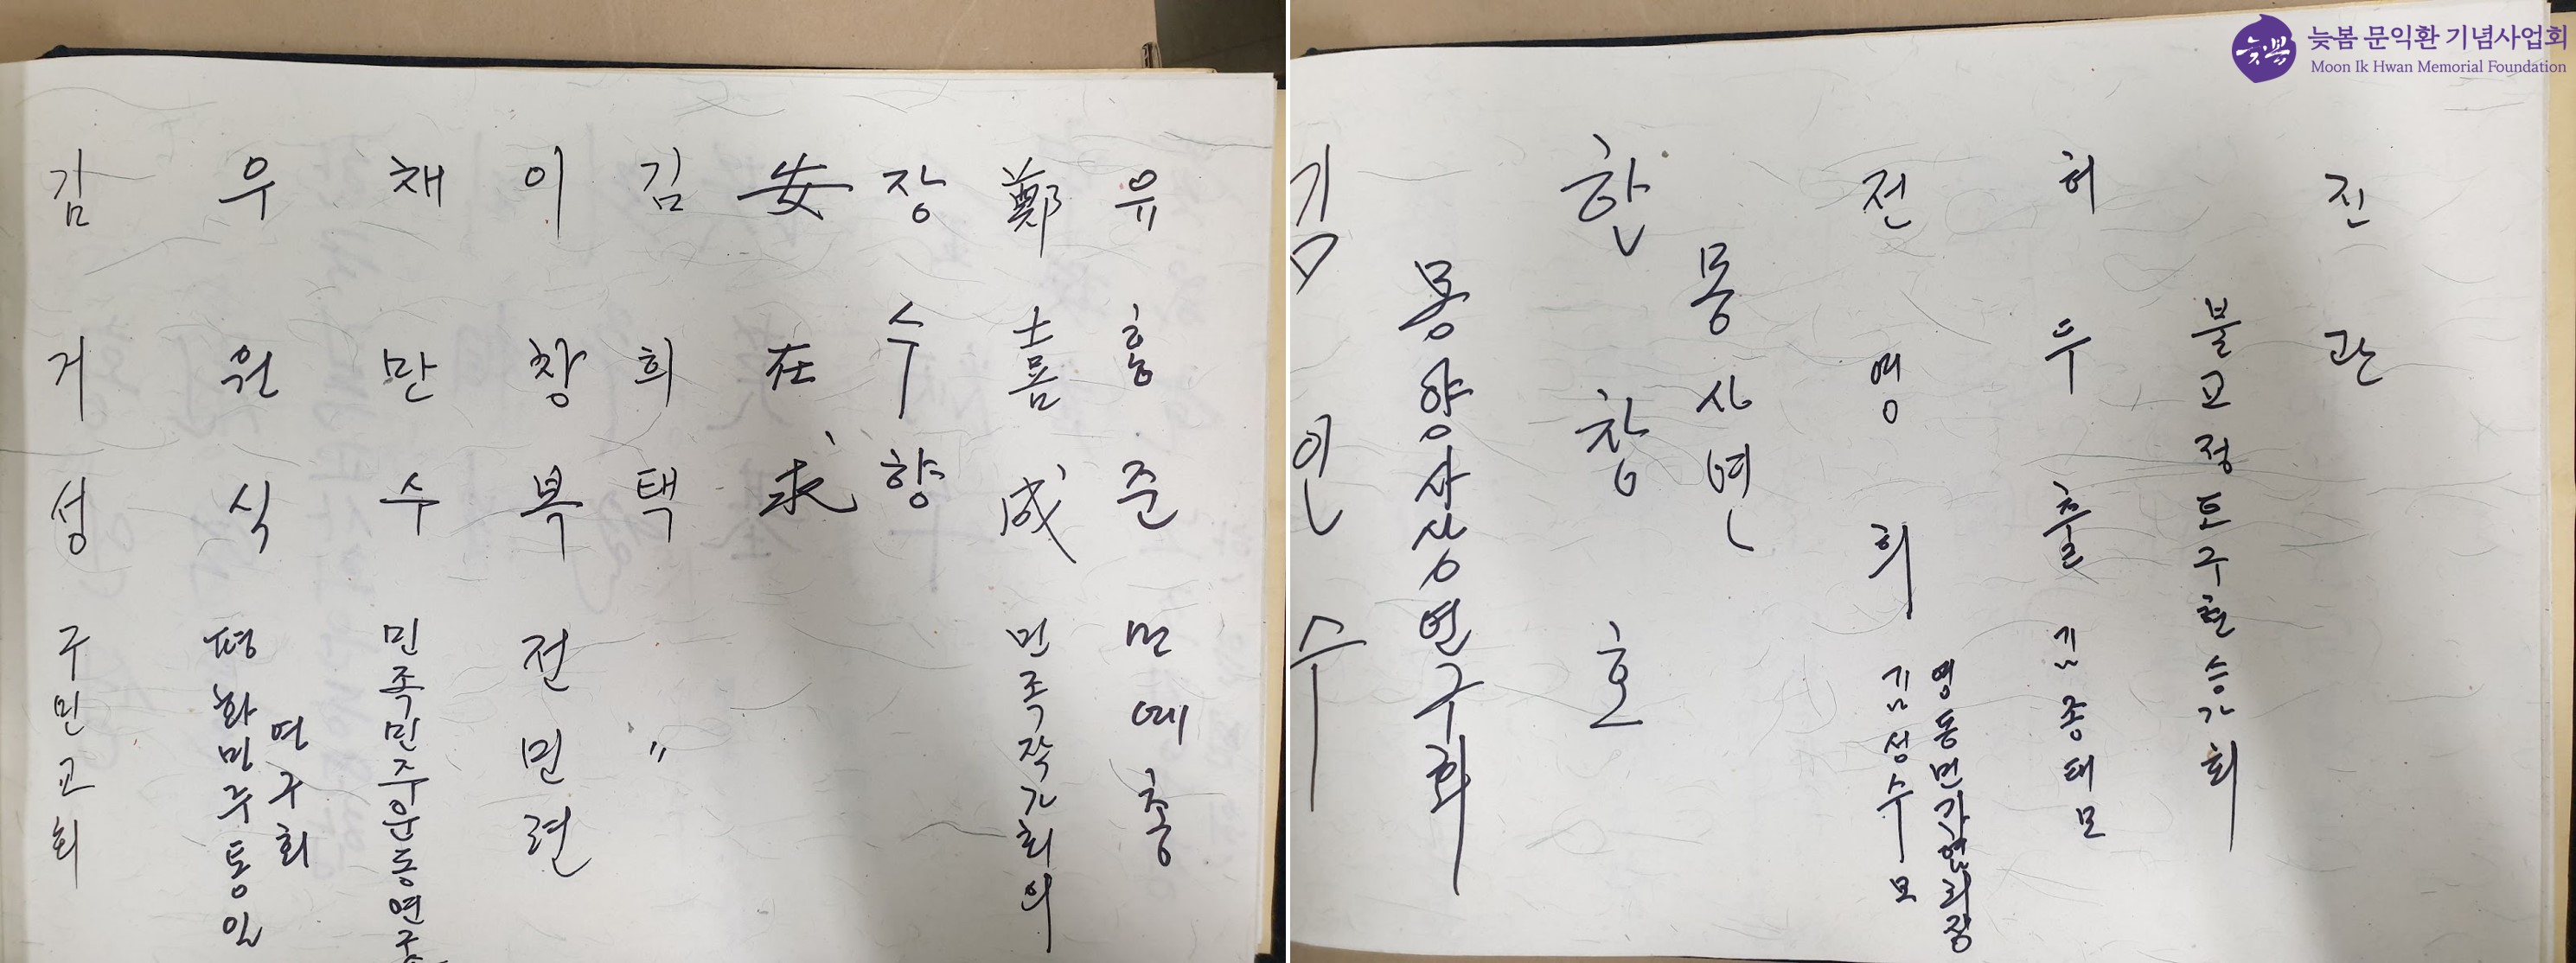 늦봄 문익환 기념사업회
Moon Ik Hwan Memorial Foundation
유홍준 민예총
鄭喜成 민족작가회의
장수향
安在求
김희택 〃
이창복 전민련
채만수 민족민주운동연구
우원식 평화민주통일
연구회
김거성 구민교회
진관
불교정토구현승가회
허두출 김종태 모
전영희
영동민가협회장
김성수 모
몽사연
한창호
몽양사상연구회
김인수